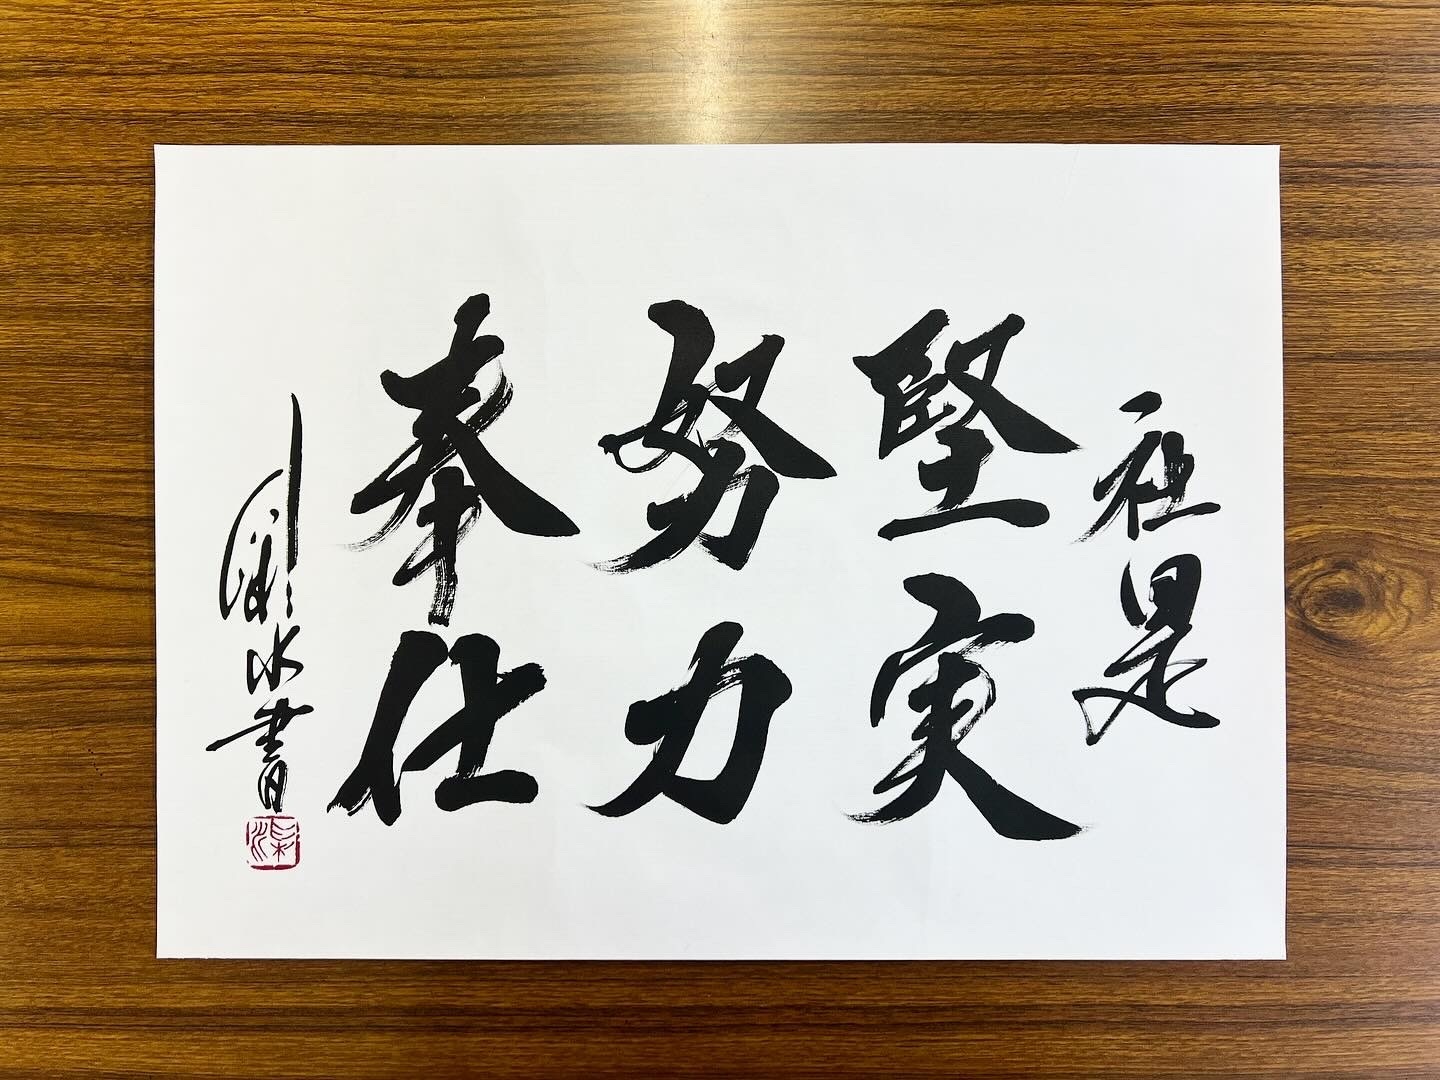 社是
堅実
努力
奉仕
水書